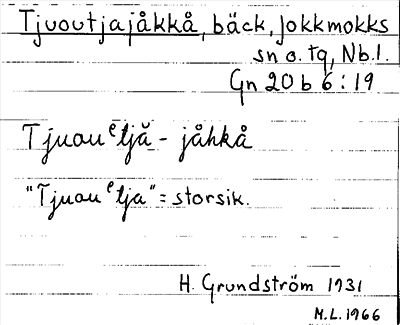 Tjuoutjajåkkå, bäck, Jokkmokks
sn o. tg, Nb.l.
Gn 20 b 6:19
Tjuouᵉtjă - jåhkå
"Tjuouᵉtja" = storsik.
H. Grundström 1931
M.L. 1966